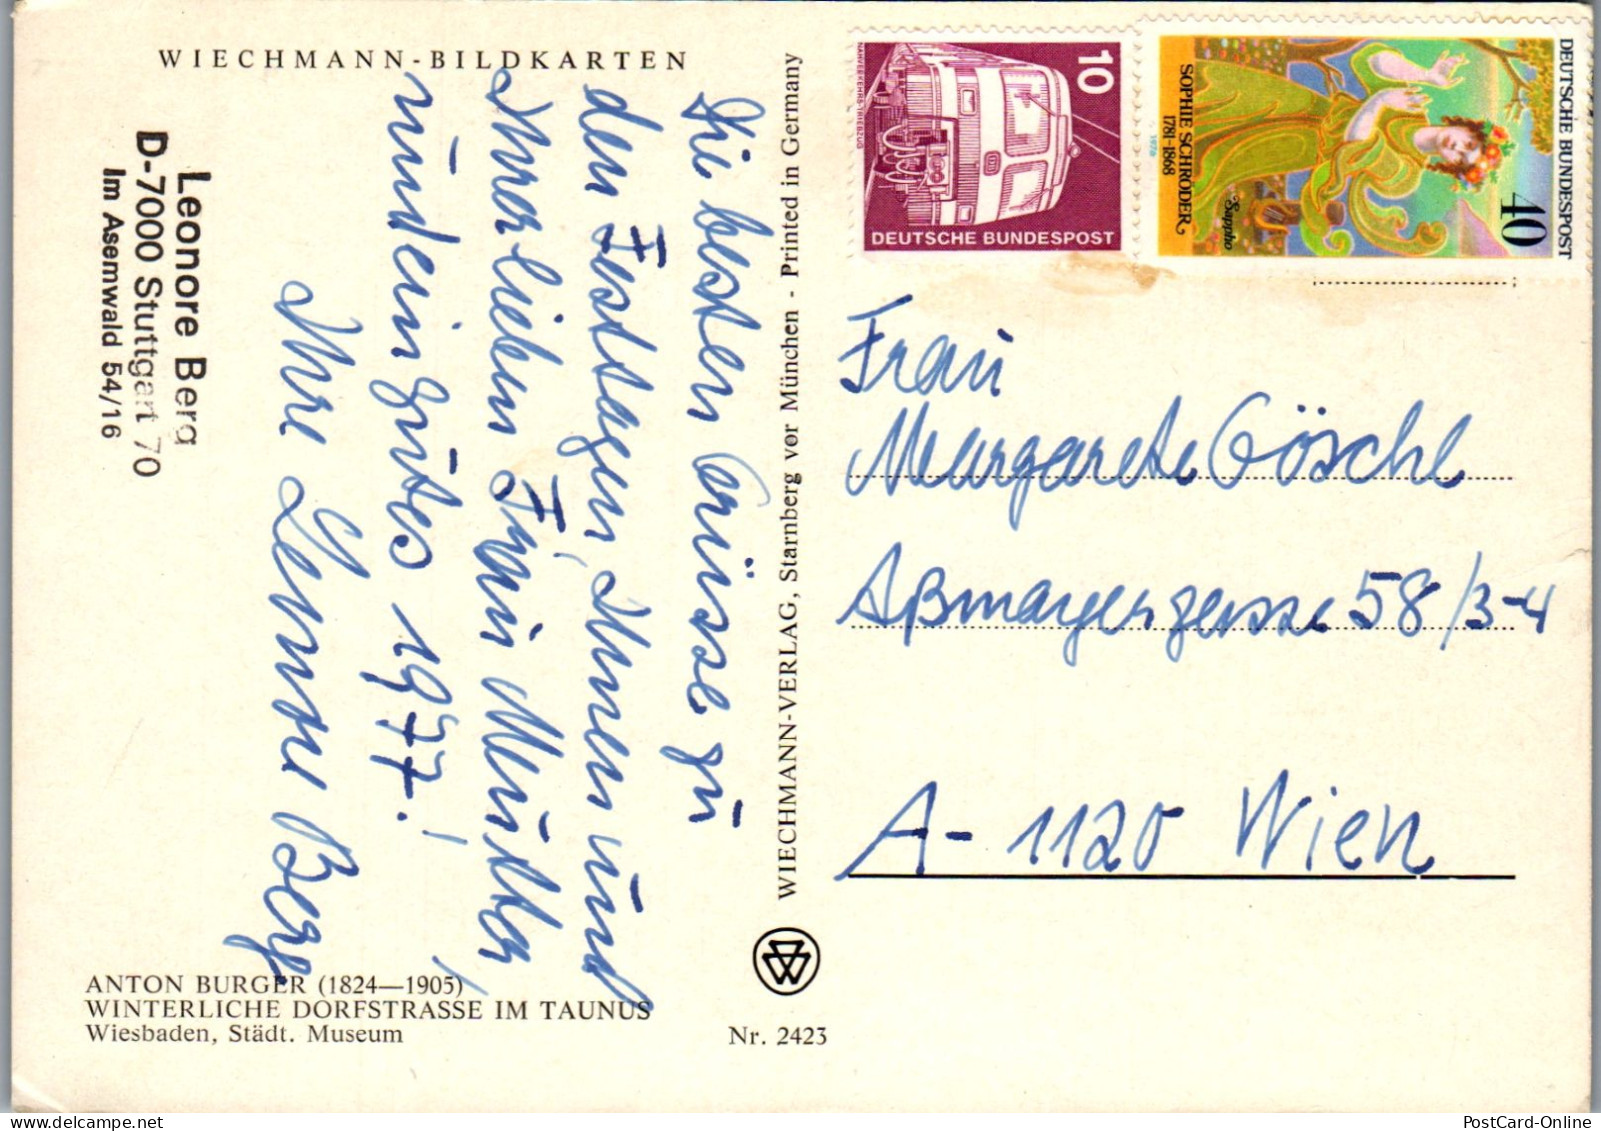 WIECHMANN-BILDKARTEN
Leonore Berg
D-7000 Stuttgart 70
Im Asemwald 54/16
Die besten Grüsse zu
den Festtagen, Ihnen und
Ihrer lieben Frau Mutter,
und ein gutes 1977!
Ihre Leonore Berg
ANTON BURGER (1824—1905)
WINTERLICHE DORFSTRASSE IM TAUNUS
Wiesbaden, Städt. Museum
Nr. 2423
WIECHMANN-VERLAG, Starnberg vor München - Printed in Germany
10
NAHVERKEHRS-TRIEBZUG
DEUTSCHE BUNDESPOST
DEUTSCHE BUNDESPOST
40
SOPHIE SCHRÖDER
1781-1868
Sappho
1976
Frau
Margarete Göschl
Aßmayergasse 58/3-4
A-1120 Wien
PostCard-Online